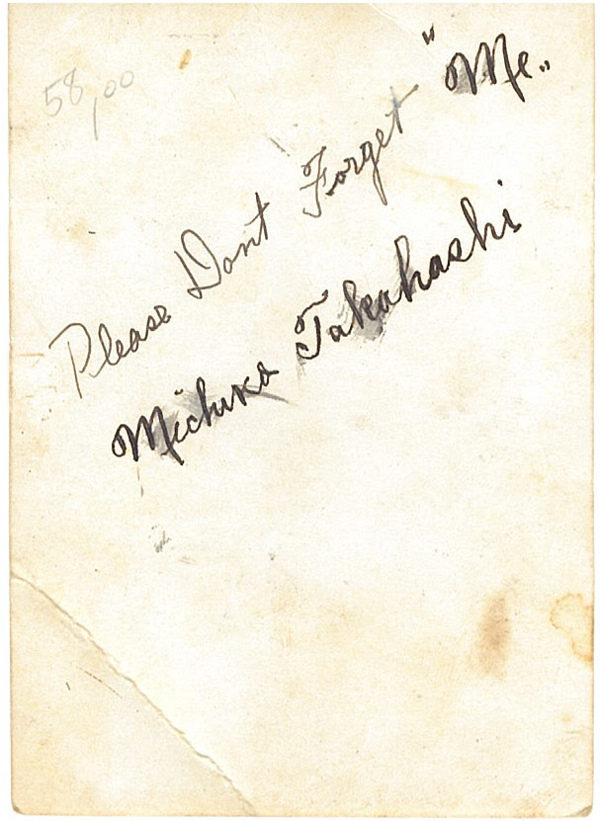 58,00
Please Dont Forget "Me„
Michiko Takahashi